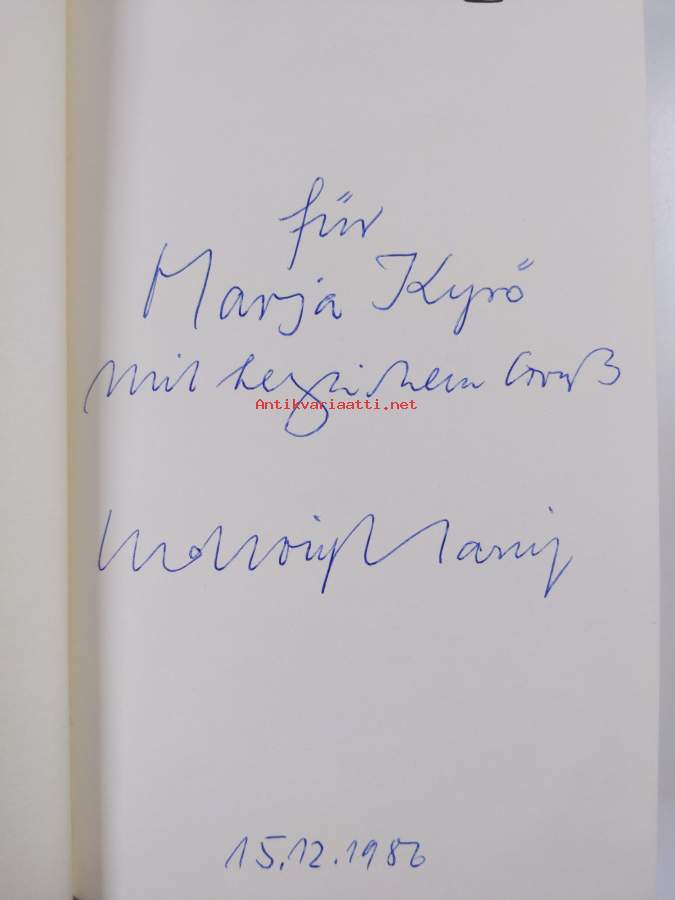 für
Marja Kyrö
mit herzlichem Gruß
Antikvariaatti.net
15.12.1986